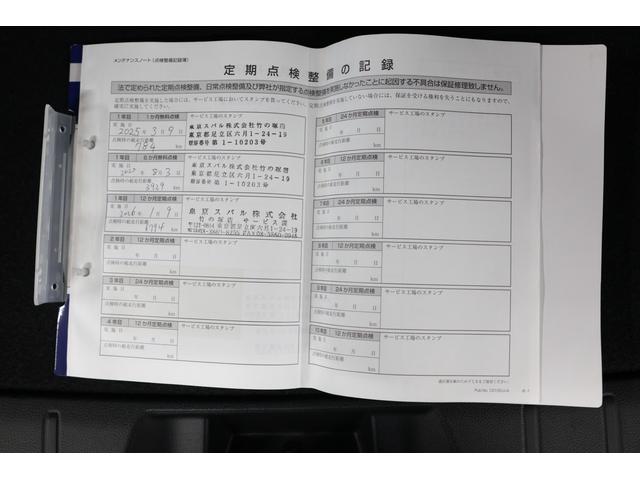 メンテナンスノート(点検整備記録簿)
定期点検整備の記録
法で定められた定期点検整備、日常点検整備及び弊社が指定する点検整備を実施しなかったことに起因する不具合は保証修理致しません。
1年目 1か月無料点検 サービス工場のスタンプ
実施日 2025年3月9日
点検時の総走行距離 784 km
東京スバル株式会社竹の塚店
東京都足立区六月1-24-19
認証番号 第1-10203号
1年目 6か月無料点検 サービス工場のスタンプ
実施日 8月3日
点検時の総走行距離 3929 km
東京スバル株式会社竹の塚店
東京都足立区六月1-24-19
第1-10203号
1年目 12か月定期点検 サービス工場のスタンプ
実施日 2026年1月9日
点検時の総走行距離 km
東京スバル株式会社
竹の塚店 サービス課
東京都足立区六月1-24-19
2年目 12か月定期点検 サービス工場のスタンプ
実施日 年 月 日
点検時の総走行距離 km
3年目 24か月定期点検 サービス工場のスタンプ
実施日 年 月 日
点検時の総走行距離 km
4年目 12か月定期点検 サービス工場のスタンプ
実施日 年 月 日
点検時の総走行距離 km
24か月定期点検 サービス工場のスタンプ
実施日 年 月 日
点検時の総走行距離 km
12か月定期点検 サービス工場のスタンプ
実施日 年 月 日
点検時の総走行距離 km
7年目 24か月定期点検 サービス工場のスタンプ
実施日 年 月 日
点検時の総走行距離 km
12か月定期点検 サービス工場のスタンプ
実施日 年 月 日
点検時の総走行距離 km
24か月定期点検 サービス工場のスタンプ
実施日 年 月 日
点検時の総走行距離 km
10年目 12か月定期点検 サービス工場のスタンプ
実施日 年 月 日
点検時の総走行距離 km